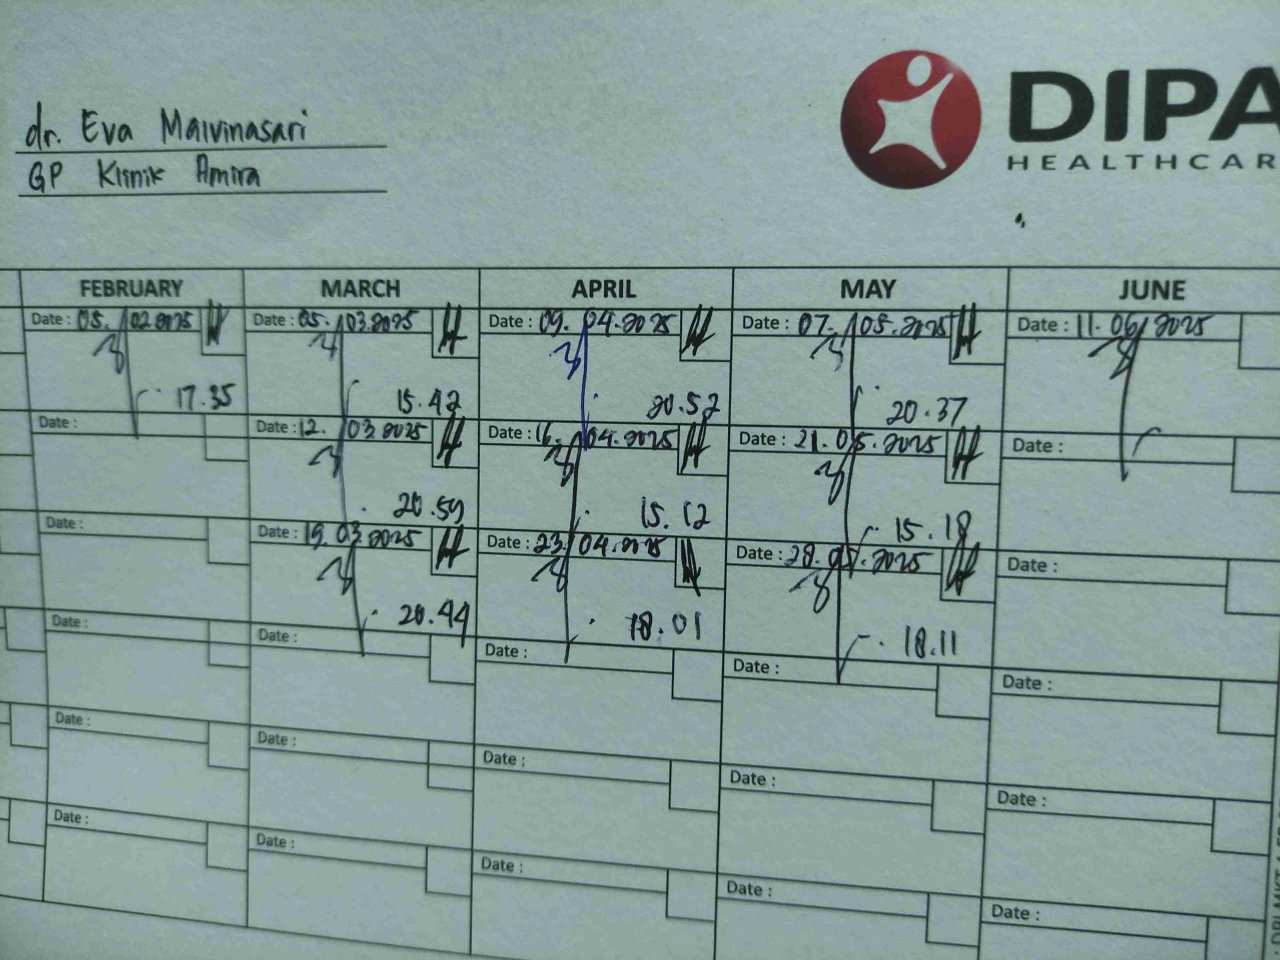 dr. Eva Malvinasari
GP Klinik Amira
DIPA
HEALTHCAR
FEBRUARY MARCH APRIL MAY JUNE
Date : 05. 02.2025 Date : 05. 03.2025 Date : 09. 04.2025 Date : 07. 05.2025 Date : 11. 06 2025
17.35 15.42 20.52 20.37
Date : Date : 12. 03 2025 Date : 16. 04.2025 Date : 21.05.2025 Date :
20.59 15.12 15.18
Date : Date : 19.03 2025 Date : 23. 04.2025 Date : 28.05.2025 Date :
20.44 18.01 18.11
Date : Date : Date : Date : Date :
Date : Date : Date : Date : Date :
Date : Date : Date : Date : Date :